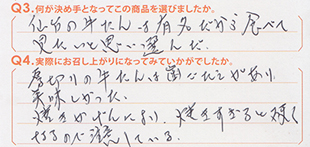 Q3.何が決め手となってこの商品を選びましたか。
仙台の牛たんは有名だから食べて
見たいと思い選んだ.
Q4.実際お召し上がりになってみていかがでしたか。
厚切りの牛たんは歯ごたえがあり
美味しかった.
焼きかげんにより、焼きすぎると硬く
なるので注意している.